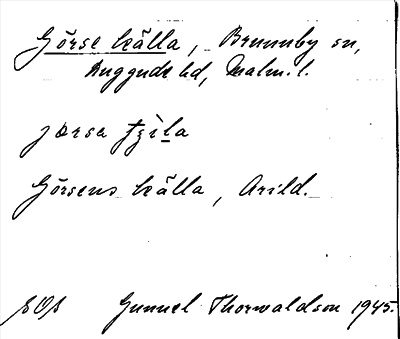 Görse källa, Brunnby sn,
Luggude hd, Malm. l.
Görsens källa, Arild.
Gunnel Thorwaldson 1945.